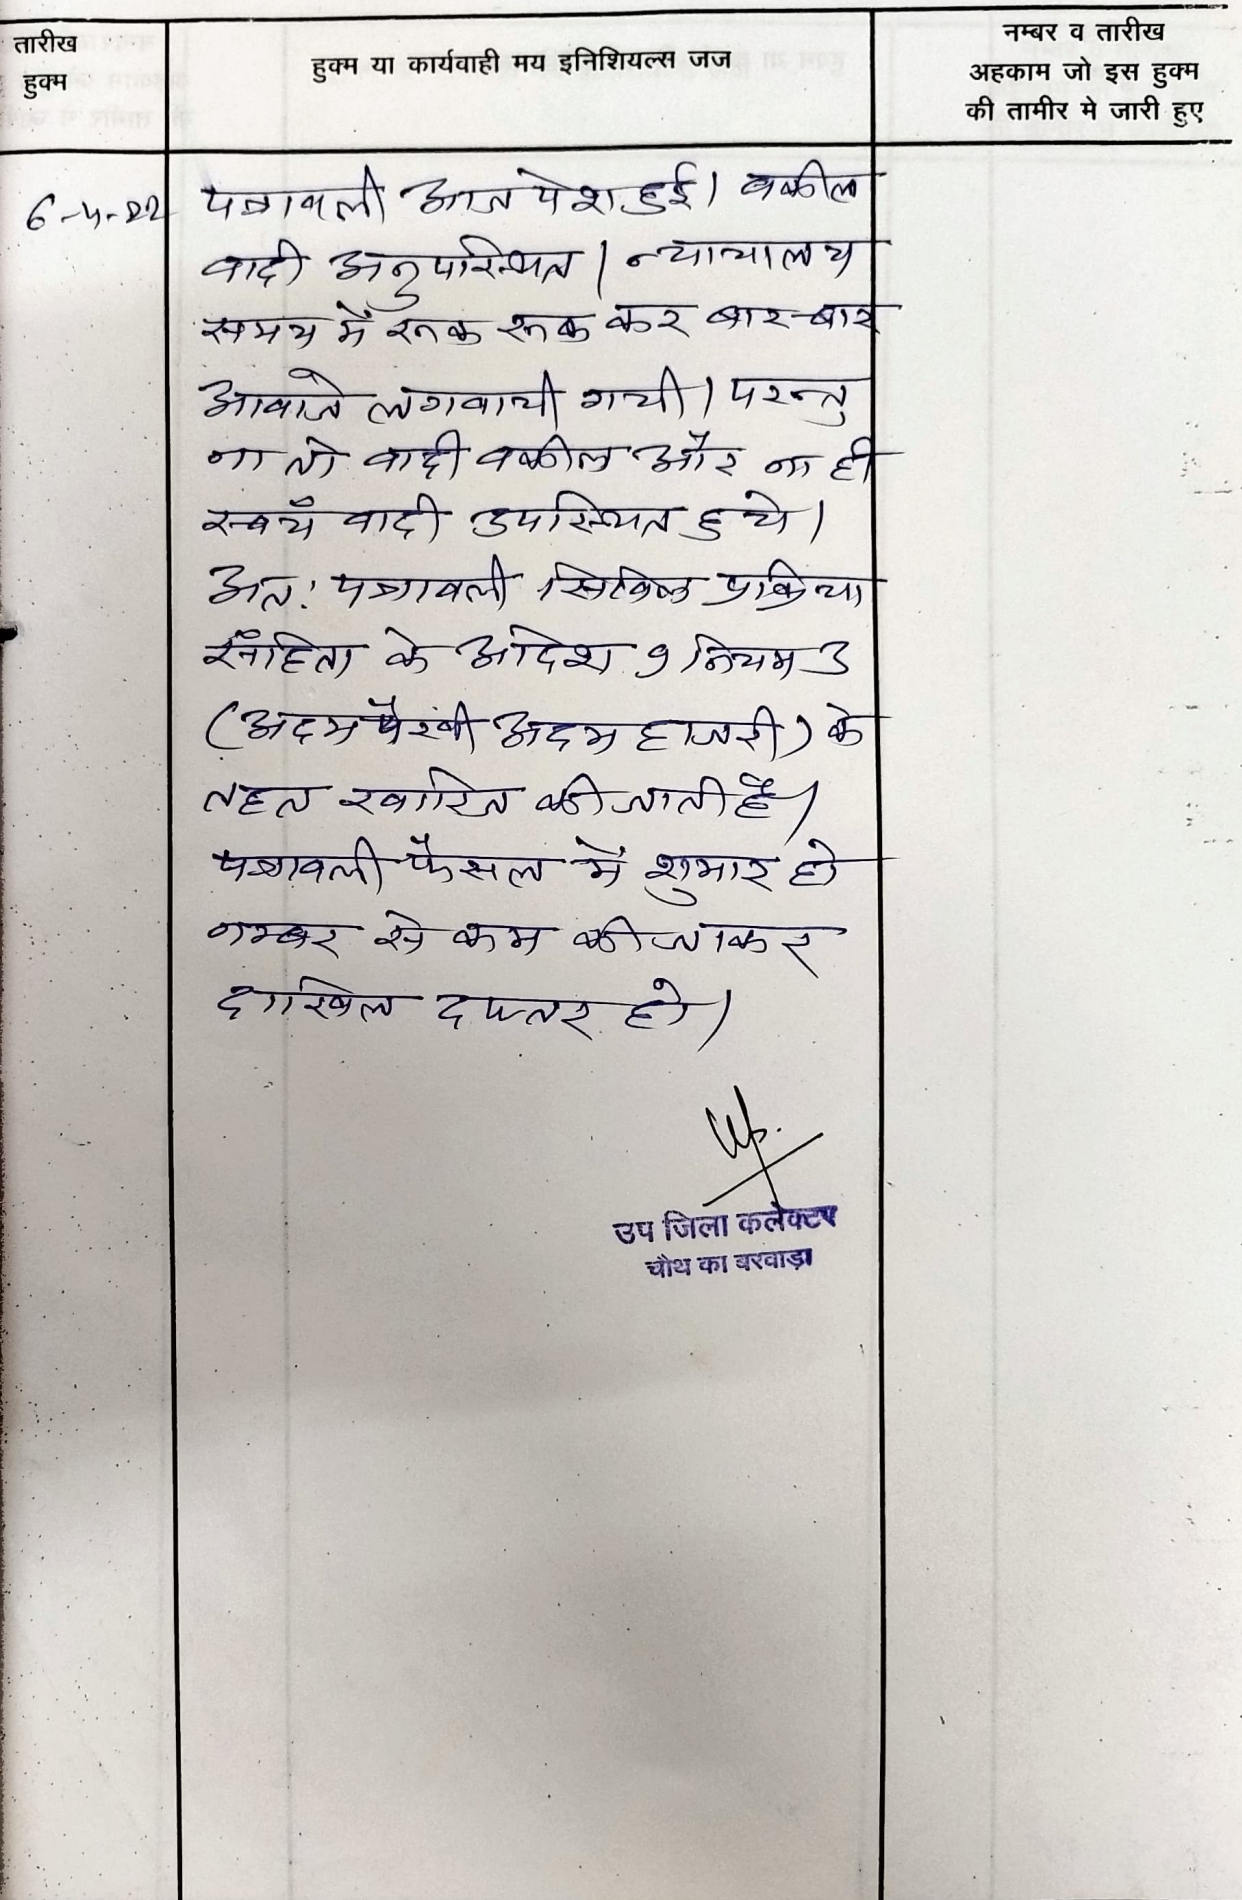 तारीख
हुक्म
हुक्म या कार्यवाही मय इनिशियल्स जज
नम्बर व तारीख
अहकाम जो इस हुक्म
की तामीर मे जारी हुए
6-4-22
पत्रावली आज पेश हुई। वकील
वादी अनुपस्थित। न्यायालय
समय में रूक रूक कर बार-बार
आवाजे लगवायी गयी। परन्तु
ना तो वादी वकील और ना ही
स्वयं वादी उपस्थित हुये।
अतः पत्रावली सिविल प्रक्रिया
संहिता के आदेश 9 नियम 3
(अदम पैरवी अदम हाजरी) के
तहत खारिज की जाती है।
पत्रावली फैसल में शुमार हो
नम्बर से कम की जाकर
दाखिल दफ्तर हो।
उप जिला कलेक्टर
चौथ का बरवाड़ा